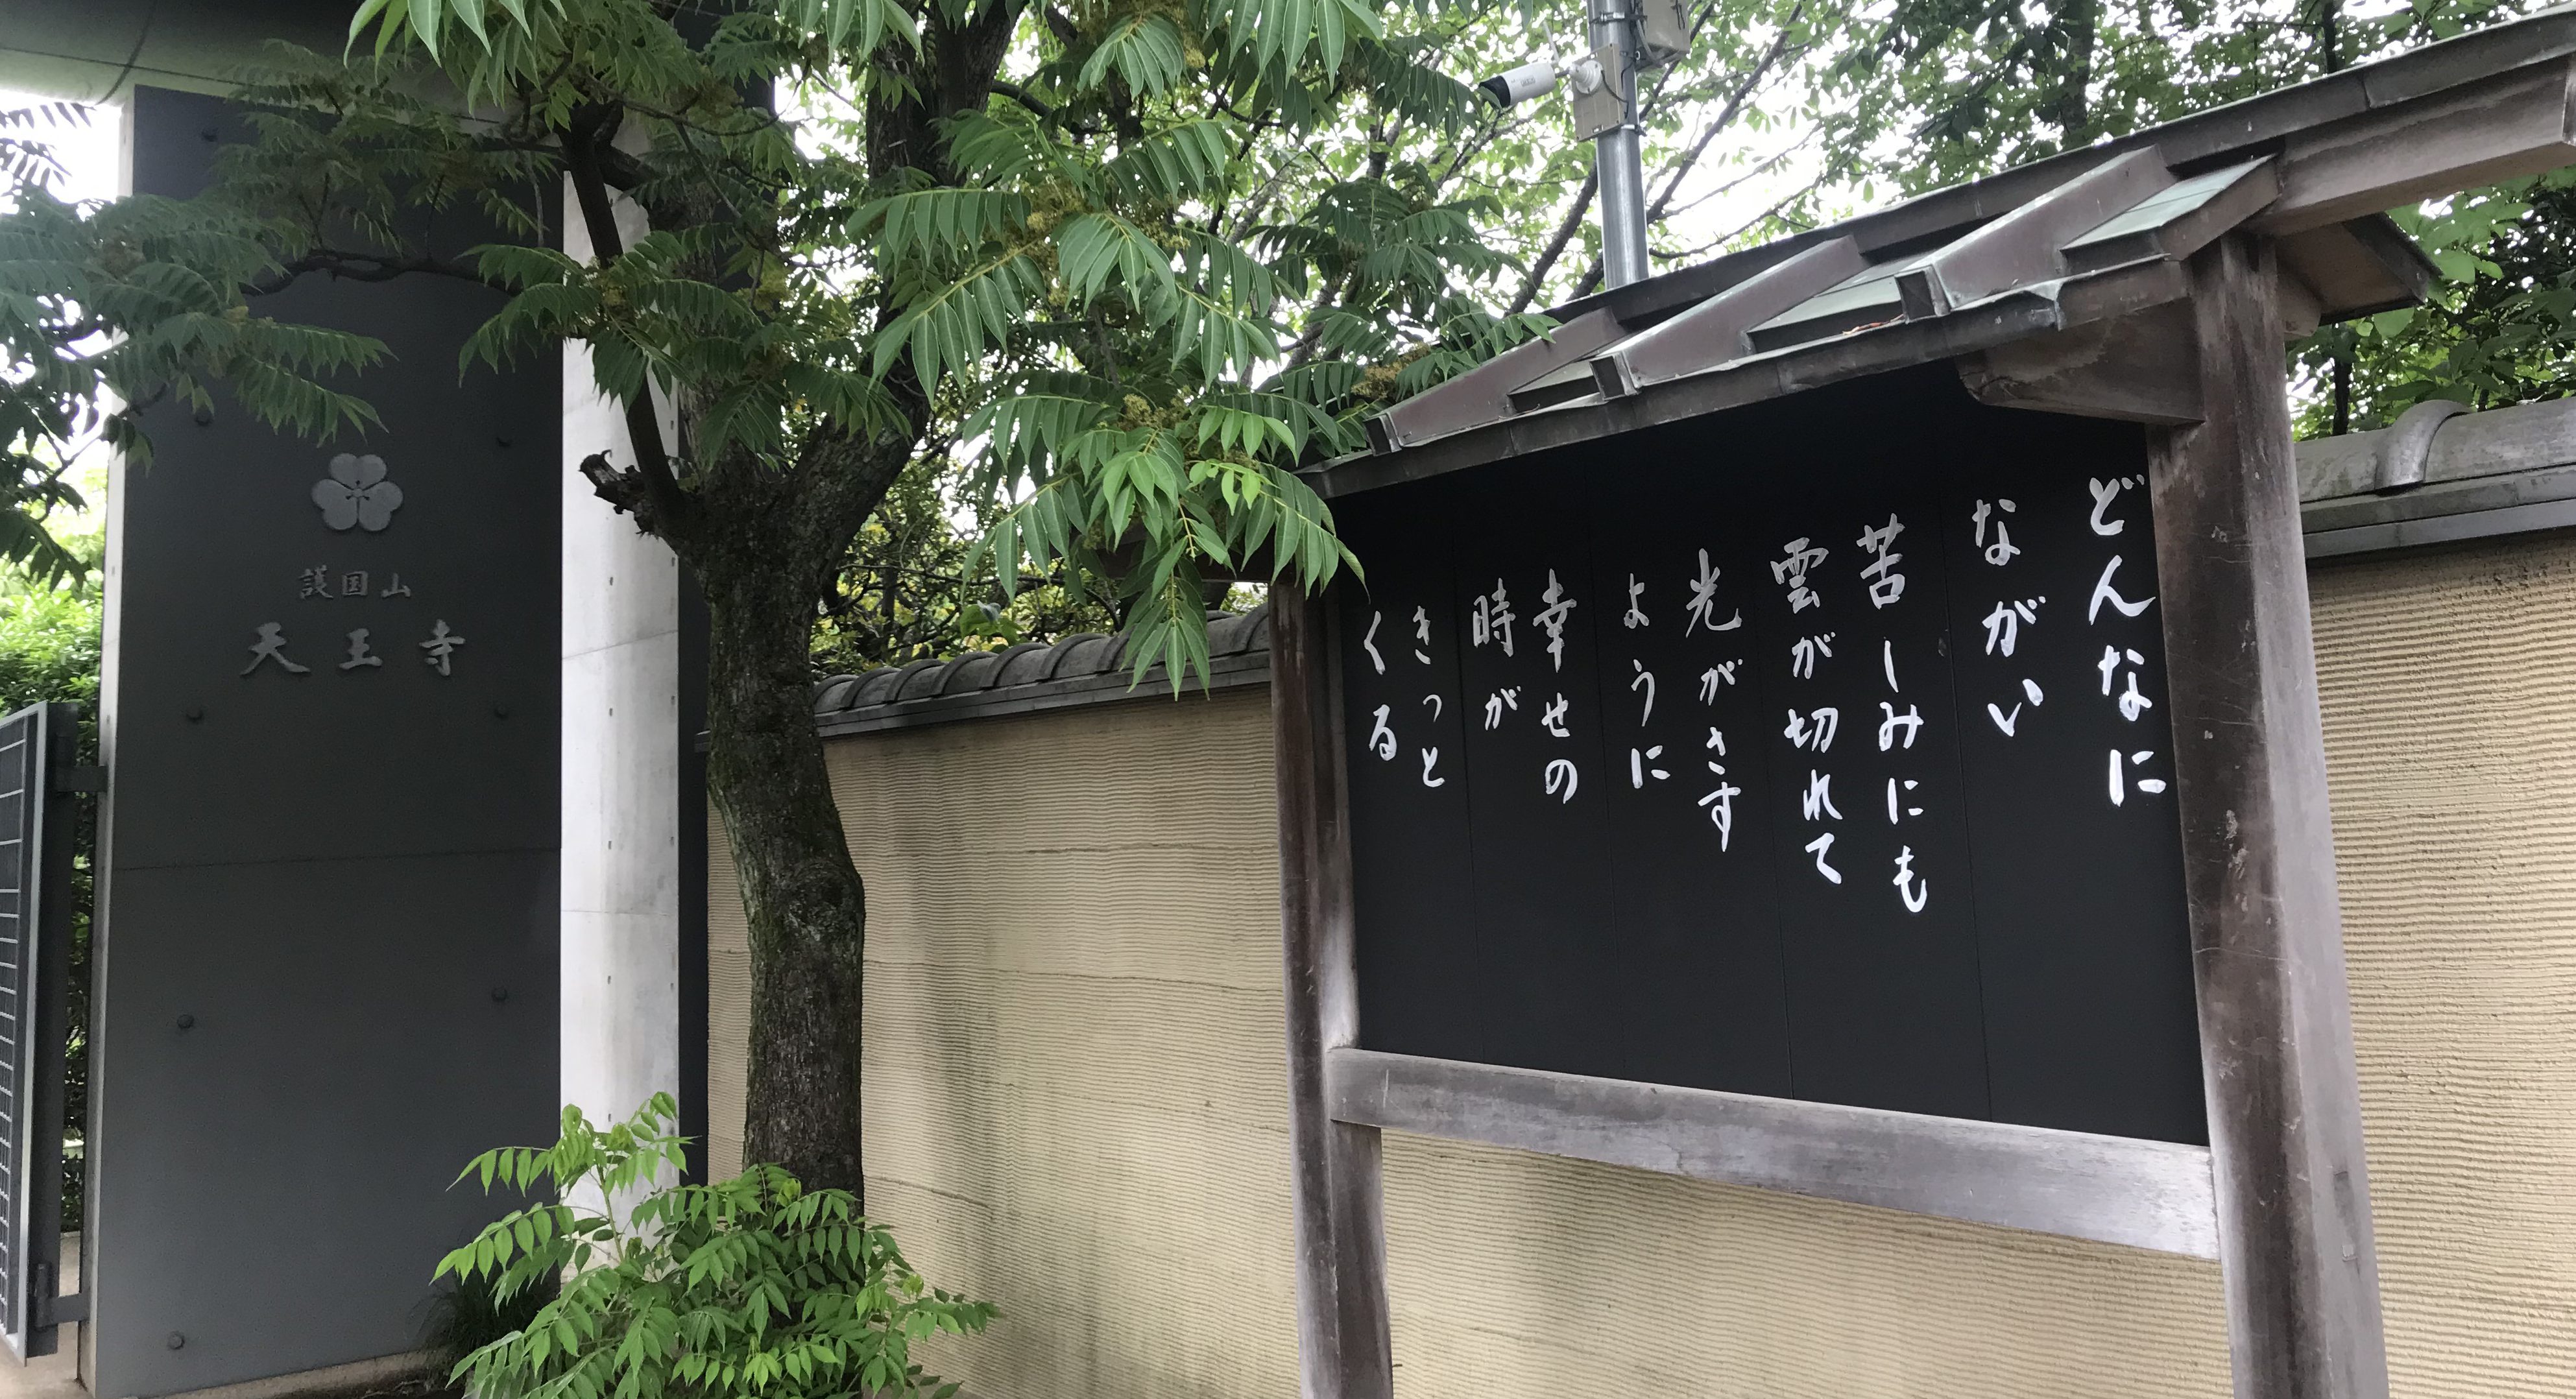 護国山
天王寺
どんなに
ながい
苦しみにも
雲が切れて
光がさす
ように
幸せの
時が
きっと
くる